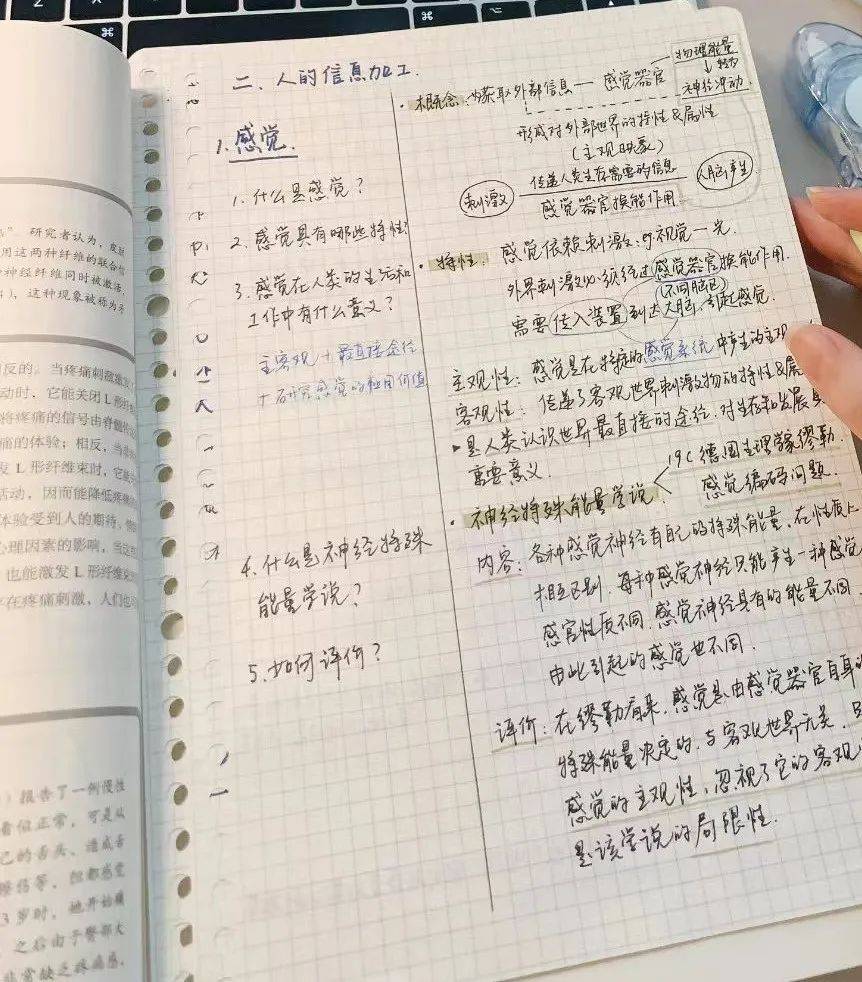 二、人的信息加工.
1.感觉.
1.什么是感觉？
2.感觉具有哪些特性？
3.感觉在人类的生活和
工作中有什么意义？
主客观＋最直接途径
＋研究感觉的应用价值
4.什么是神经特殊
能量学说？
5.如何评价？
·概念 获取外部信息—感觉器官
物理能量
↓转为
神经冲动
形成对外部世界的特性&属性
(主观映象)
刺激
传递人类生存需要的信息
感觉器官换能作用
人脑产生
·特性: 感觉依赖刺激: 听视觉—光.
外界刺激必须经过感觉器官换能作用.
需要传入装置到达大脑, 引起感觉.
主观性: 感觉是在特定的感觉系统中产生的主观
客观性: 传递了客观世界刺激物的特性&属
▸是人类认识世界最直接的途径. 对生存和发展具
重要意义.
·神经特殊能量学说
19C德国生理学家缪勒.
感觉编码问题.
内容: 各种感觉神经有自己的特殊能量, 在性质上
相互区别, 每种感觉神经只能产生一种感觉
感官性质不同, 感觉神经具有的能量不同,
由此引起的感觉也不同.
评价: 在缪勒看来, 感觉是由感觉器官自身的
特殊能量决定的, 与客观世界无关,
感觉的主观性, 忽视了它的客观
是该学说的局限性.
研究者认为，
用这两种纤维的联合
神经纤维同时被激活
这种现象被称为
反的。当疼痛刺激激
动时，它能关闭L形纤
将疼痛的信号由脊髓
痛的体验；相反，当
发L形纤维束时，它
活动，因而能降低疼痛
体验受到人的期待、
心理因素的影响，当这
也能激发L形纤维
存在疼痛刺激，人们也
报告了一例慢性
看似正常，可是从
己的舌头、造成舌
但都感觉
3岁时，她开始
之后由于臀部大
非常缺乏疼痛感，